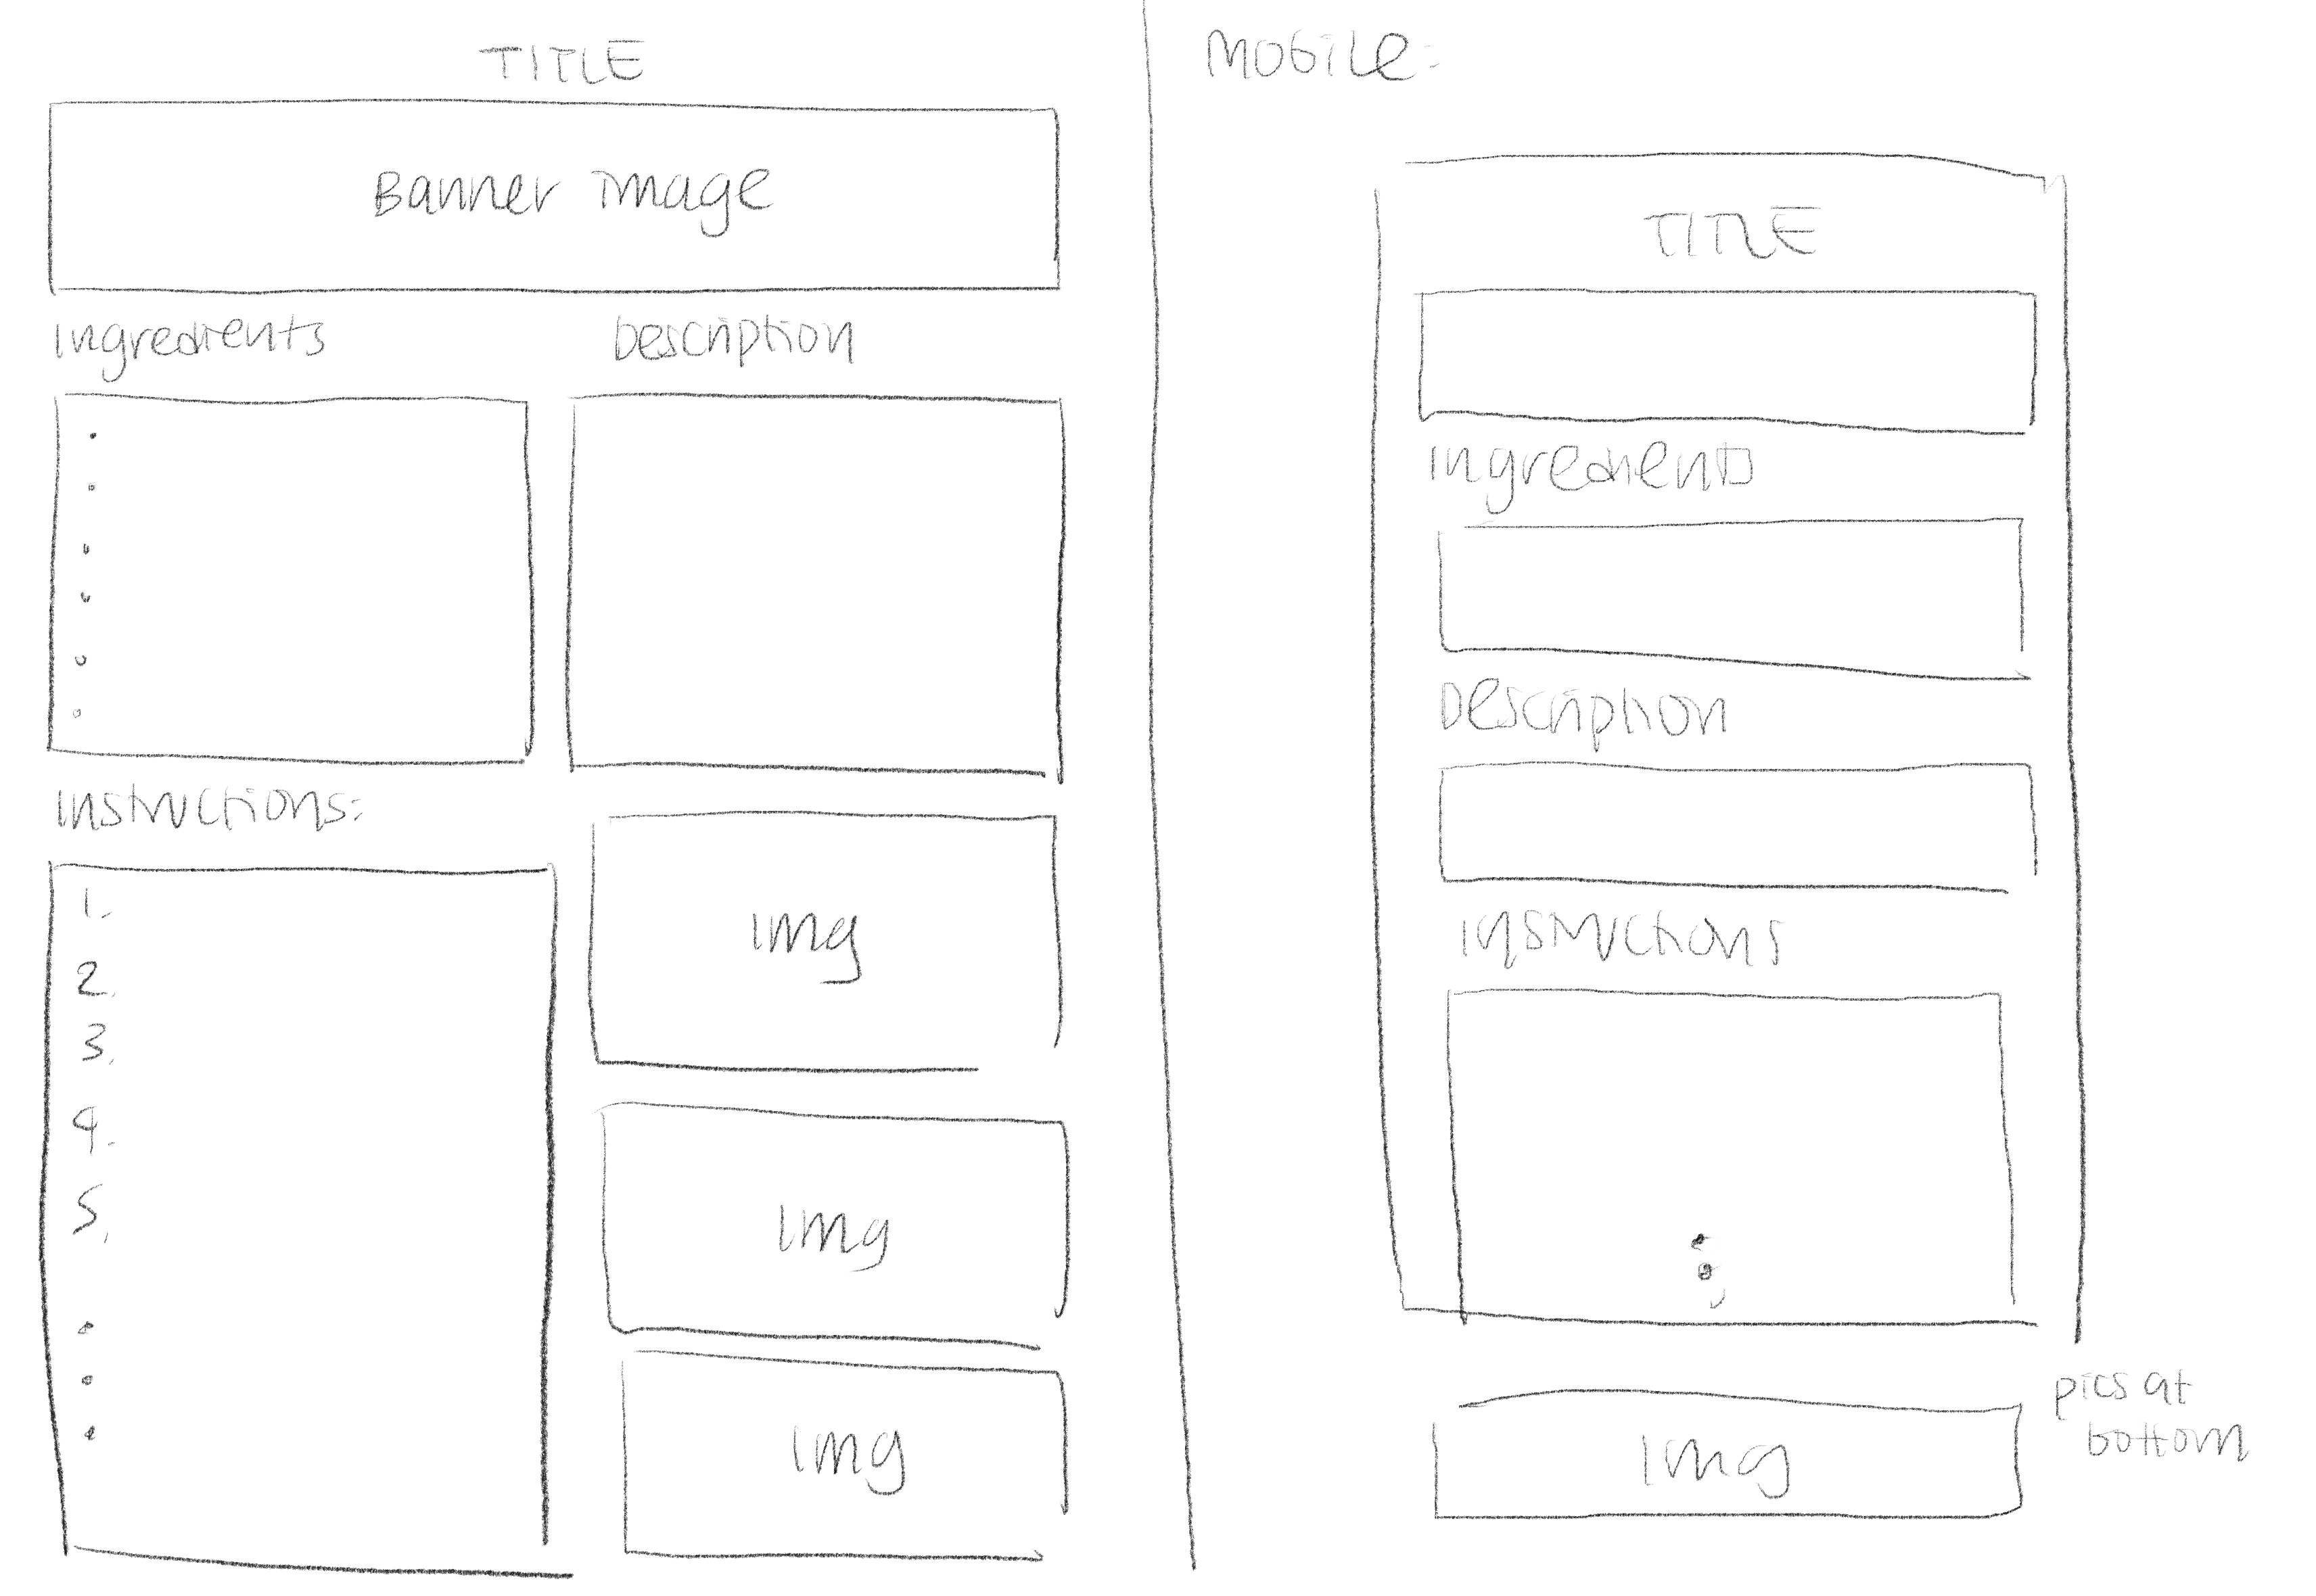 TITLE
Banner image
Ingredients
Description
Instructions:
1.
2.
3.
4.
5.
img
img
img
MOBILE:
TITLE
Ingredients
Description
Instructions
img
pics at
bottom